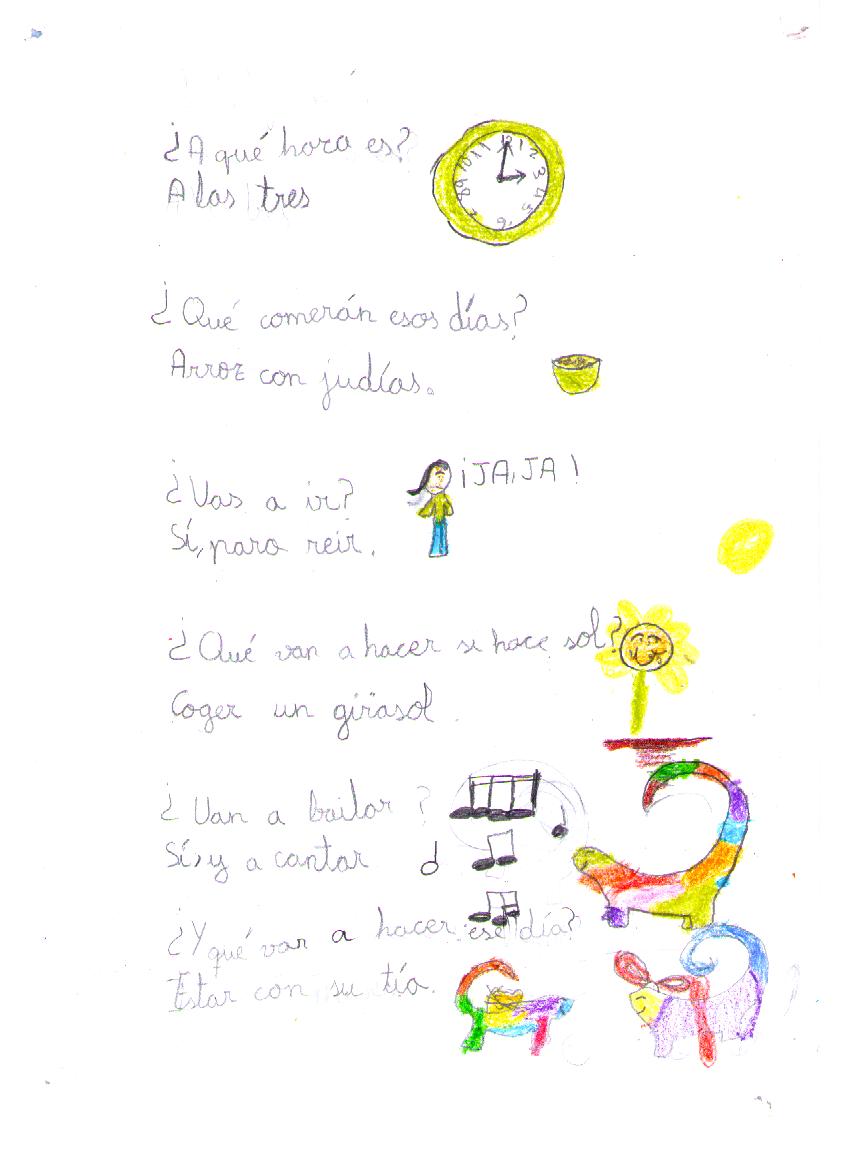 ¿A qué hora es?
12 1 2 3 4 5 6 7 8 9 10 11
A las tres
¿Qué comerán esos días?
Arroz con judías.
¿Vas a ir?
¡JA, JA!
Sí, para reir.
¿Qué van a hacer si hace sol?
Coger un girasol.
¿Van a bailar?
Sí, y a cantar
¿Y qué van a hacer ese día?
Estar con su tía.